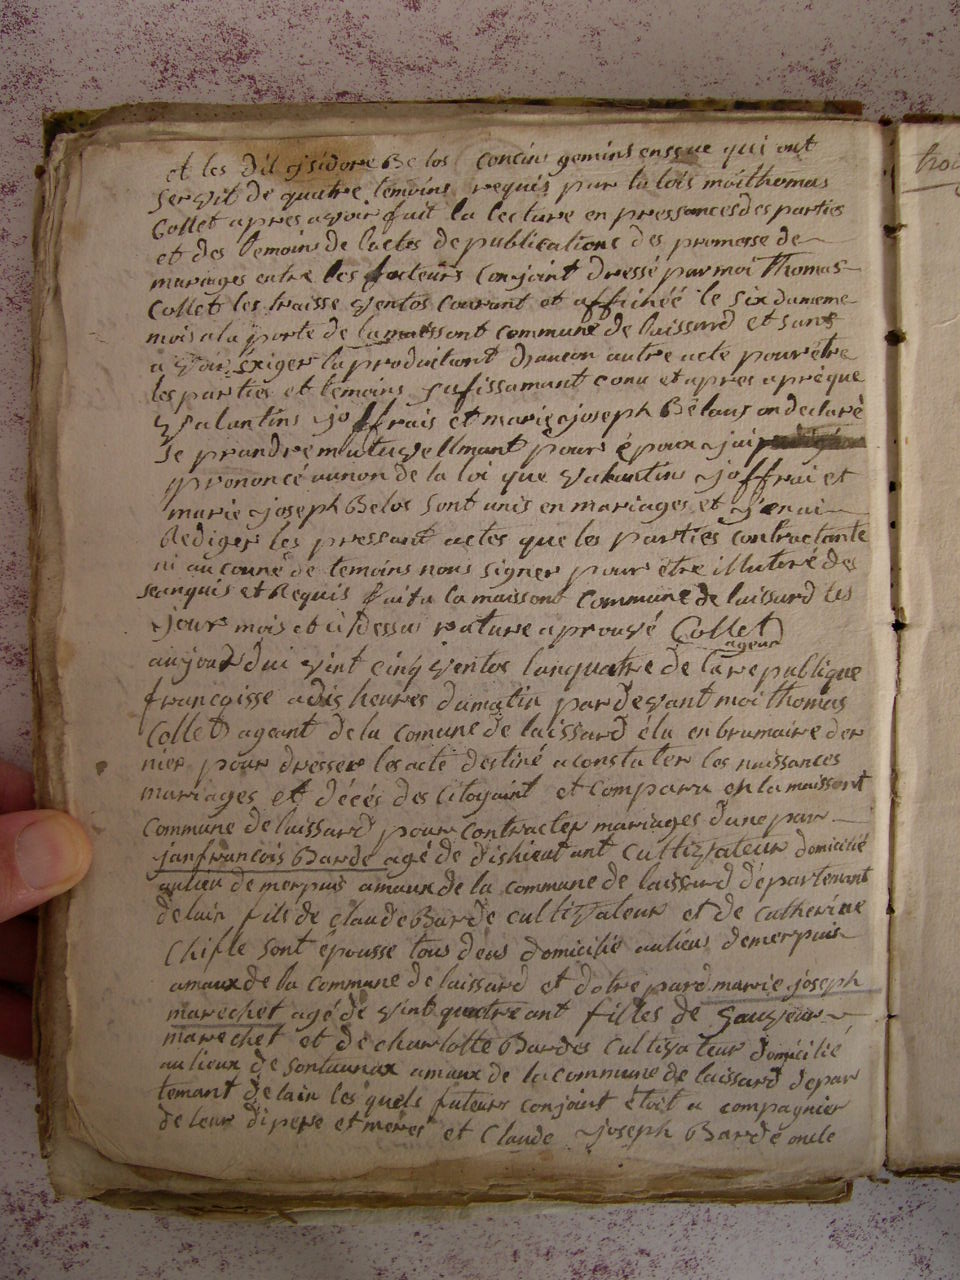 et les dit jsidore Belos concin gemins enssue qui ont
servit de quatre temoins requis par la lois moi thomas
Collet apres avoir fait la lecture en pressances des parties
et des temoins de lactes de publications des promese de
mariages entre les futeurs Conjoint dressé par moi Thomas
Collet les traisse ventos Courant et affichéé le six du meme
mois a la porte de la maissont commune de laissard et sans
avoir exiger la productiont daucun autre acte pour être
les parties et temoins sufissamant conu et apres aprèque
valantins joffrais et marie joseph Bélaus on declarè
se prandre mutuvellmant pour époux jai
prononcé aunon de la loi que valantins joffrai et
marie joseph Belos sont unis en mariages et j'enai
Rediger les pressant actes que les parties contractante
ni aucune de temoins nous signer pour être illuteré des
seanquis et Requis fait a la maissont Commune de laissard les
jour mois et ci dessu rature aprouvé Collet
agent
aujourdui vint cinq ventos lanquatre de la republique
francoisse a dis heures du matin par devant moi thomas
Collet ageant de la comune de laissard élu en brumaire der
nier pour dresser les acte destiné a constater les naissances
mariages et décés des Citoyaint et Comparu en la maissont
Commune de laissard pour contracter mariages dune par
janfrancois Barde agé de dishieut ant Cultivateur domicilié
aulieu de merpuis amaux de la commune de laissard départenant
de lain fils de claude Barde cultivateur et de Catherine
Chifle sont épousse tous deus domicilié aulieu demerpuis
amaux de la Commune de laissard et dotre pard marie joseph
marechet agé de vint quatre ant filles de Sauveur
marechet et de charlotte Bardes Cultivateur domicilié
aulieux de sontaunax amaux de la commune de laissard depar
temant de lain les quels futeurs conjoint étoit a compagnier
de leur dipere et meres et Claude joseph Bardé oncle